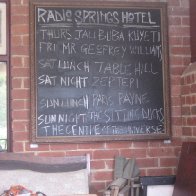 RADIO SPRINGS HOTEL
THURS JALI BUBA KUYETI
FRI MR GEOFFREY WILLIAMS
SAT LUNCH TABLE HILL
SAT NIGHT ZEPTEPI
SUN LUNCH PAYNE
SUN NIGHT THE SITTING DUCKS
THE CENTRE OF THE UNIVERSE